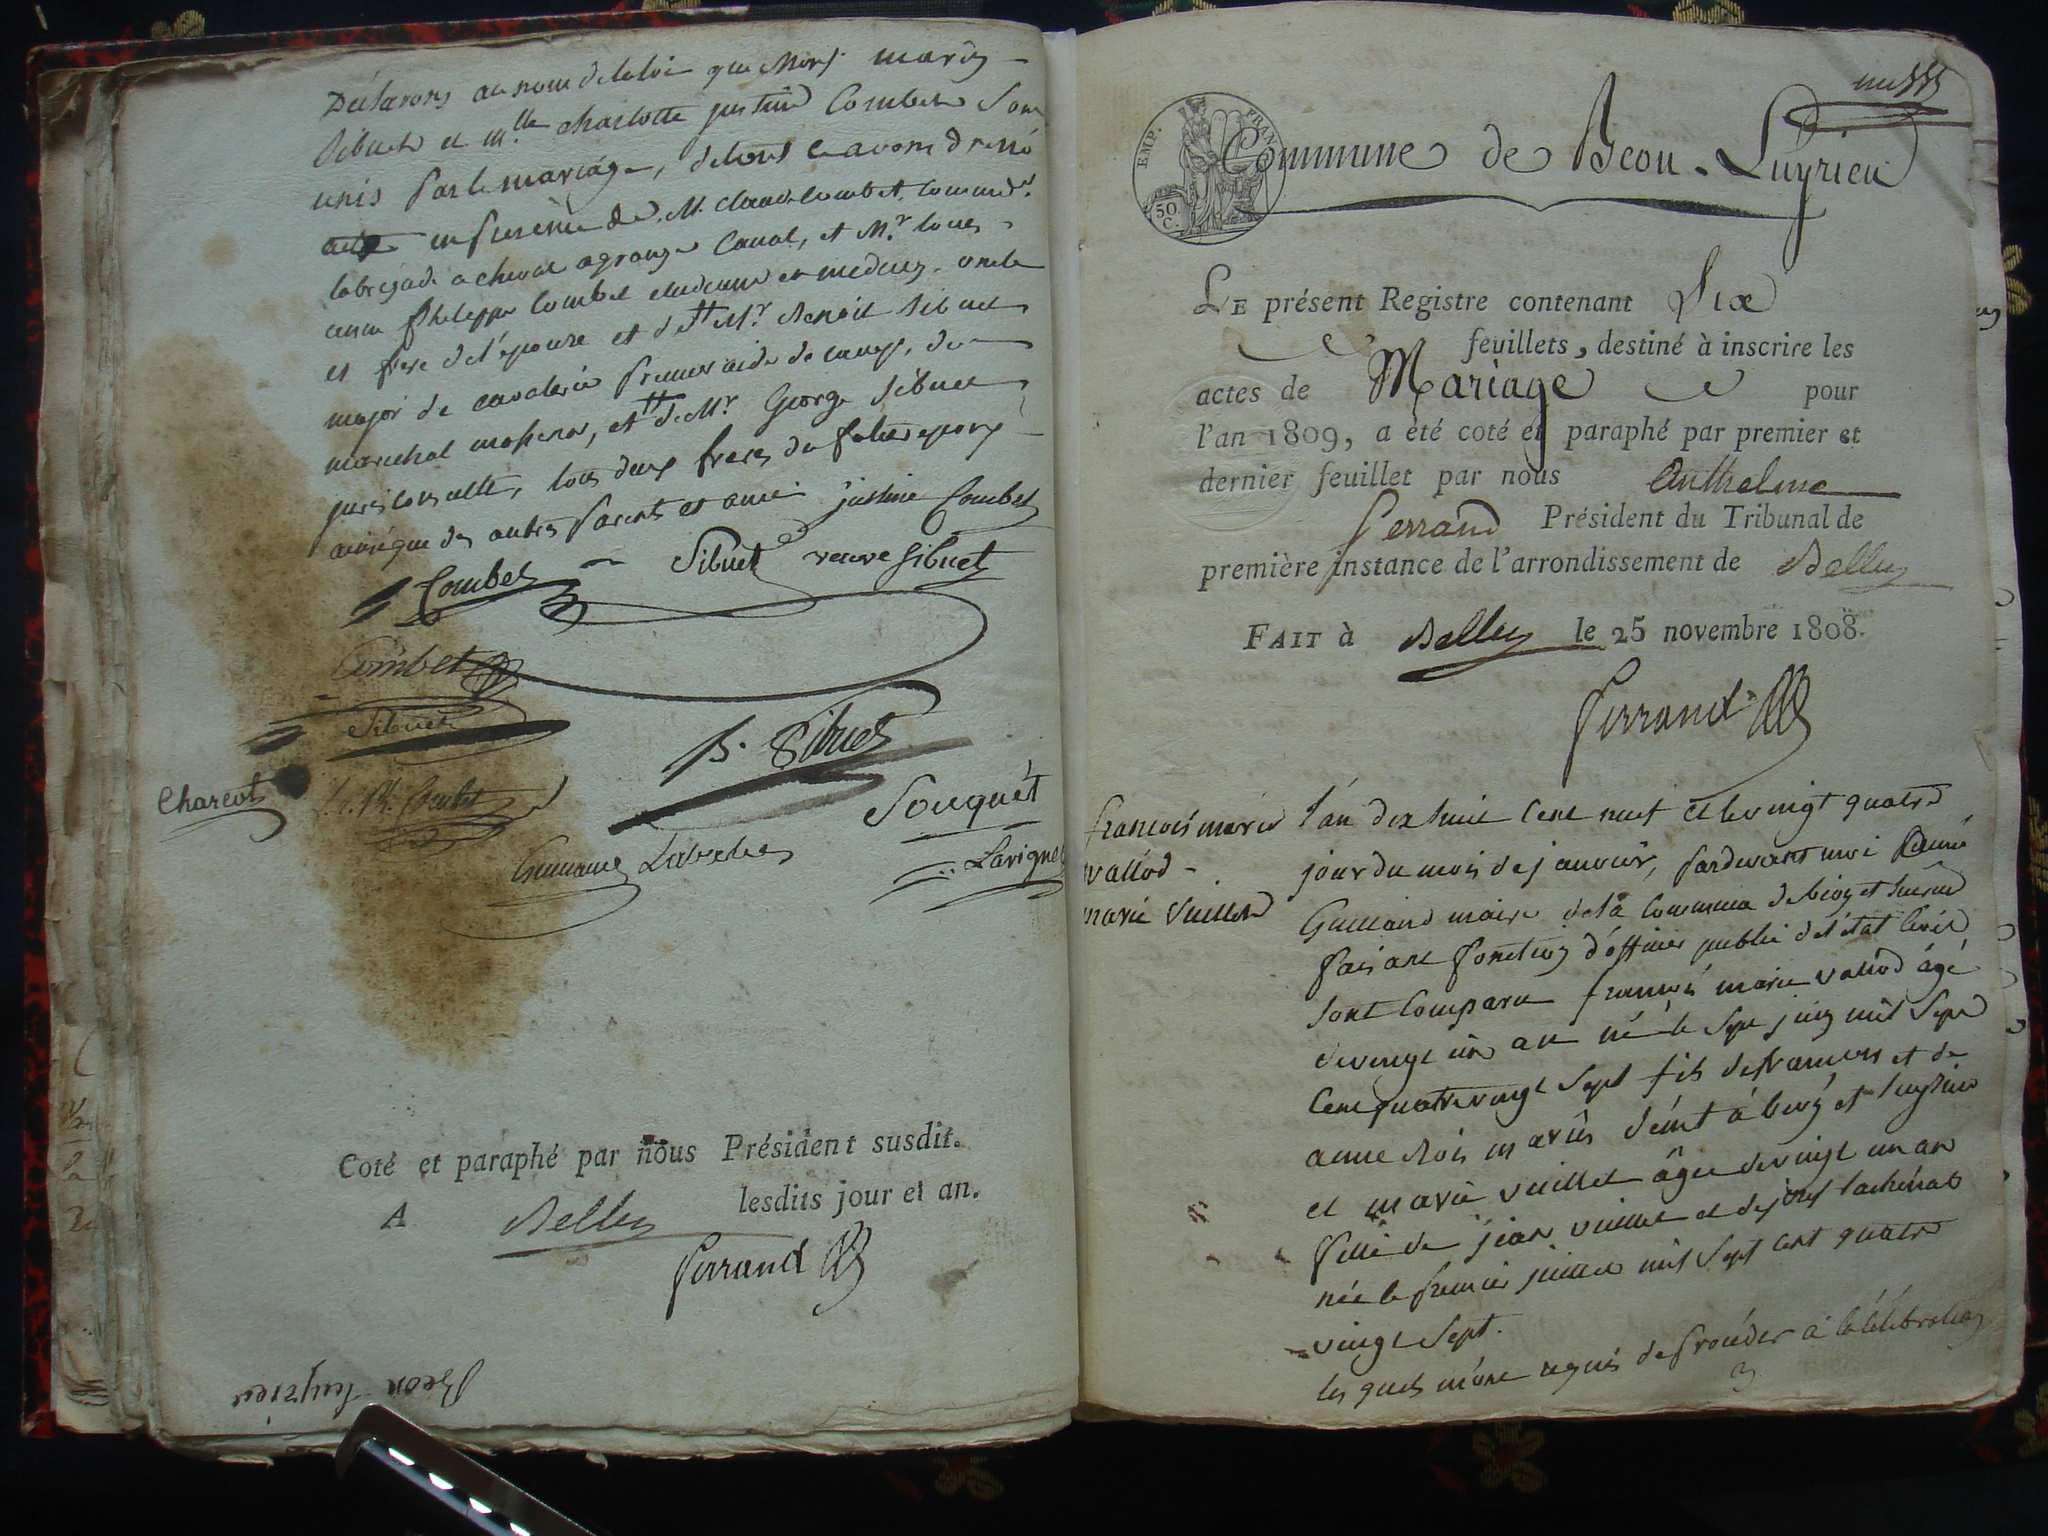 Déclarons au nom de la loi que Mons. marie
Sibuet et M.lle charlotte justine Combet sont
unis par le mariage, de tout ce avons dressé
acte en présence de M. claude combet, command.t
la brigade a cheval a grange canal, et M.r louis
philippe combet docteur en medecine oncle
et frere de l'epouse et de M.r Benoit Sibuet
major de cavalerie premier aide de camp, du
marechal massena, et de M.r George Sibuet
jurisconsulte, tous deux freres du futur epoux
ainsi que des autres parents et amis justine Combet
Combet Sibuet veuve Sibuet
Combet
Sibuet
B. Sibuet
Charcot L. Ph. Combet Souquet
Lavigne
Coté et paraphé par nous Président susdit.
A Belley lesdits jour et an.
Perrand
Béon Luyrieu
Commune de Beon-Luyrieu
EMP. FRAN.
50 C.
LE présent Registre contenant Six
feuillets, destiné à inscrire les
actes de Mariage pour
l'an 1809, a été coté et paraphé par premier et
dernier feuillet par nous Anthelme
Perrand Président du Tribunal de
première instance de l'arrondissement de Belley
FAIT à Belley le 25 novembre 1808.
Perrand
françois marie
vallod
marie Vuillet
l'an dix huit cent neuf et le vingt quatre
jour du mois de janvier, pardevant moi
maire de la commune de béon et luirieu
faisant fonction d'officier public de l'état civil
sont comparu françois marie vallod âgé
de vingt un an né le sept juin mil sept
cent quatre vingt sept fils de françois et de
anne Bois mariés de béon et luyrieu
et marie vuillet âgée de vingt un an
fille de jean vuillet et de
née le premier juillet mil sept cent quatre
vingt sept.
les quels m'ont requis de procéder à la célébration